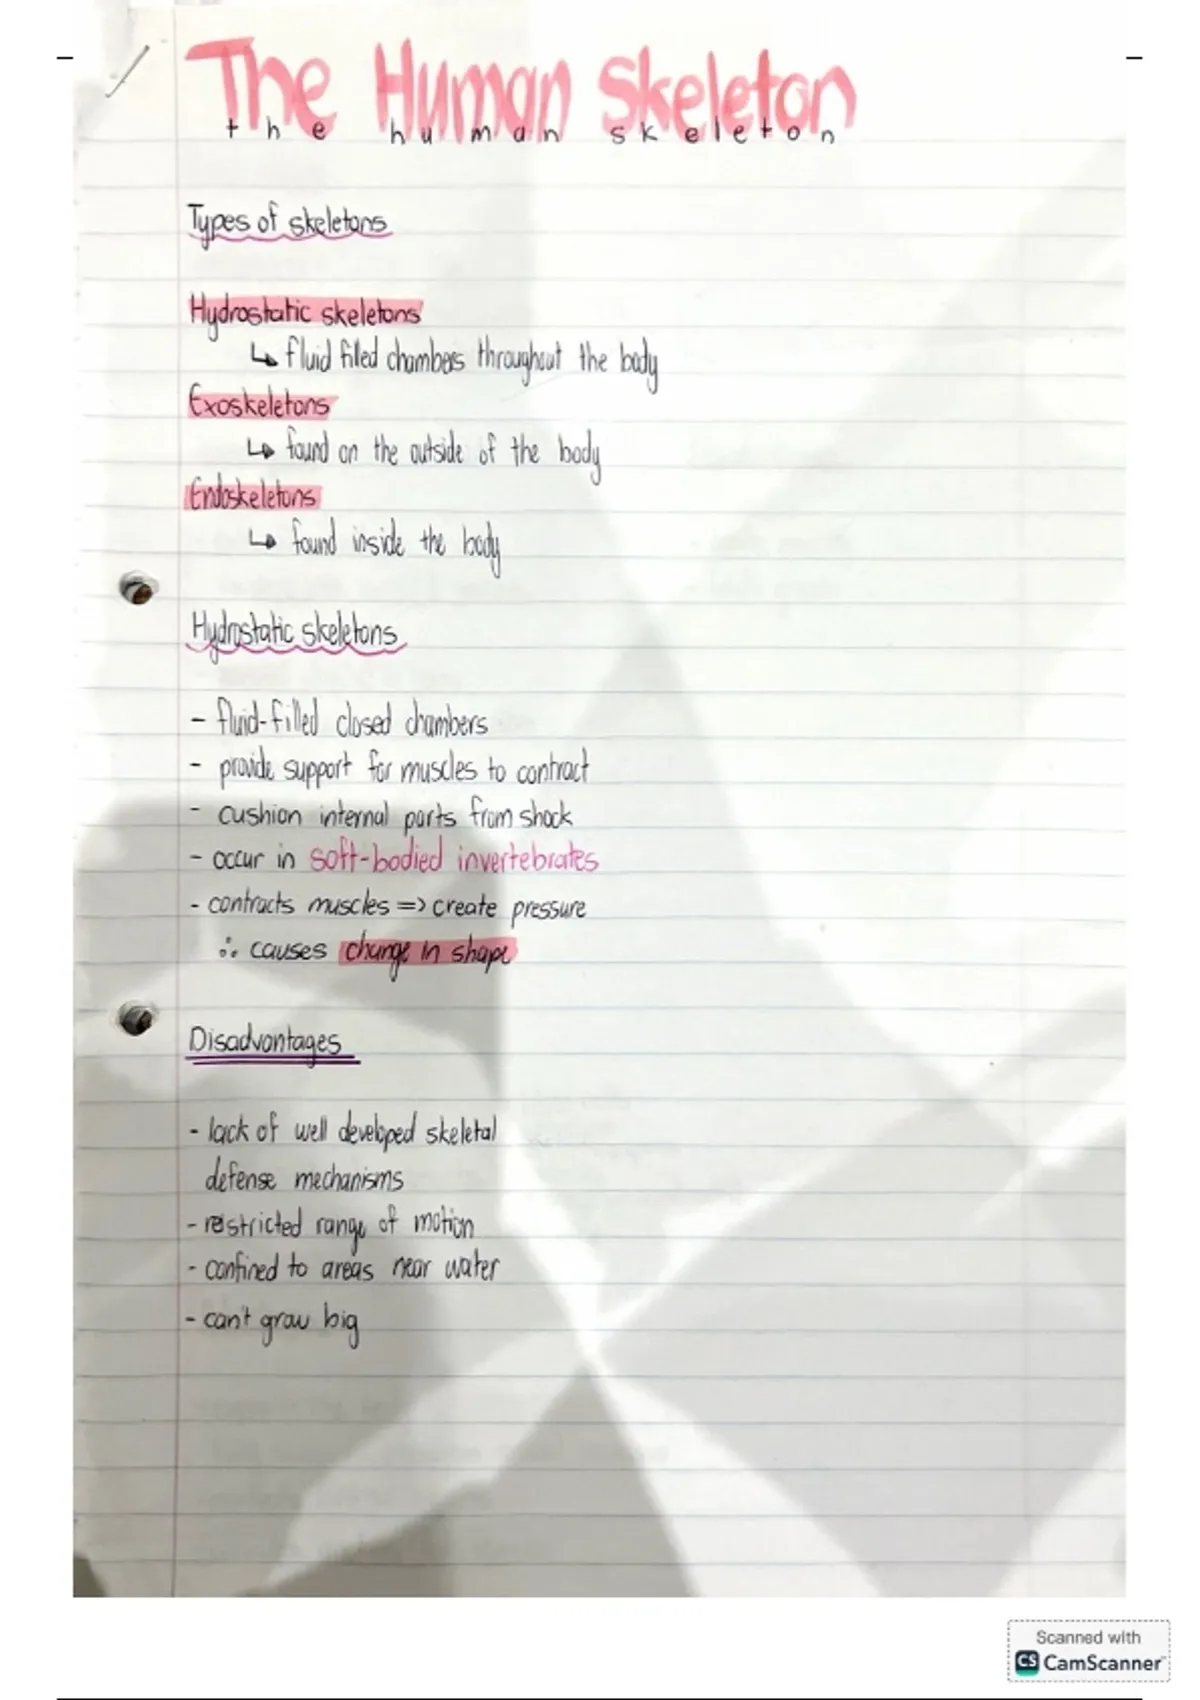 The Human Skeleton
the human skeleton
Types of skeletons
Hydrostatic skeletons
↳ fluid filled chambers throughout the body
Exoskeletons
↳ found on the outside of the body
Endoskeletons
↳ found inside the body
Hydrostatic skeletons
- fluid-filled closed chambers
- provide support for muscles to contract
- cushion internal parts from shock
- occur in soft-bodied invertebrates
- contracts muscles => create pressure
∴ causes change in shape
Disadvantages
- lack of well developed skeletal
defense mechanisms
- restricted range of motion
- confined to areas near water
- can't grow big
Scanned with
CS CamScanner